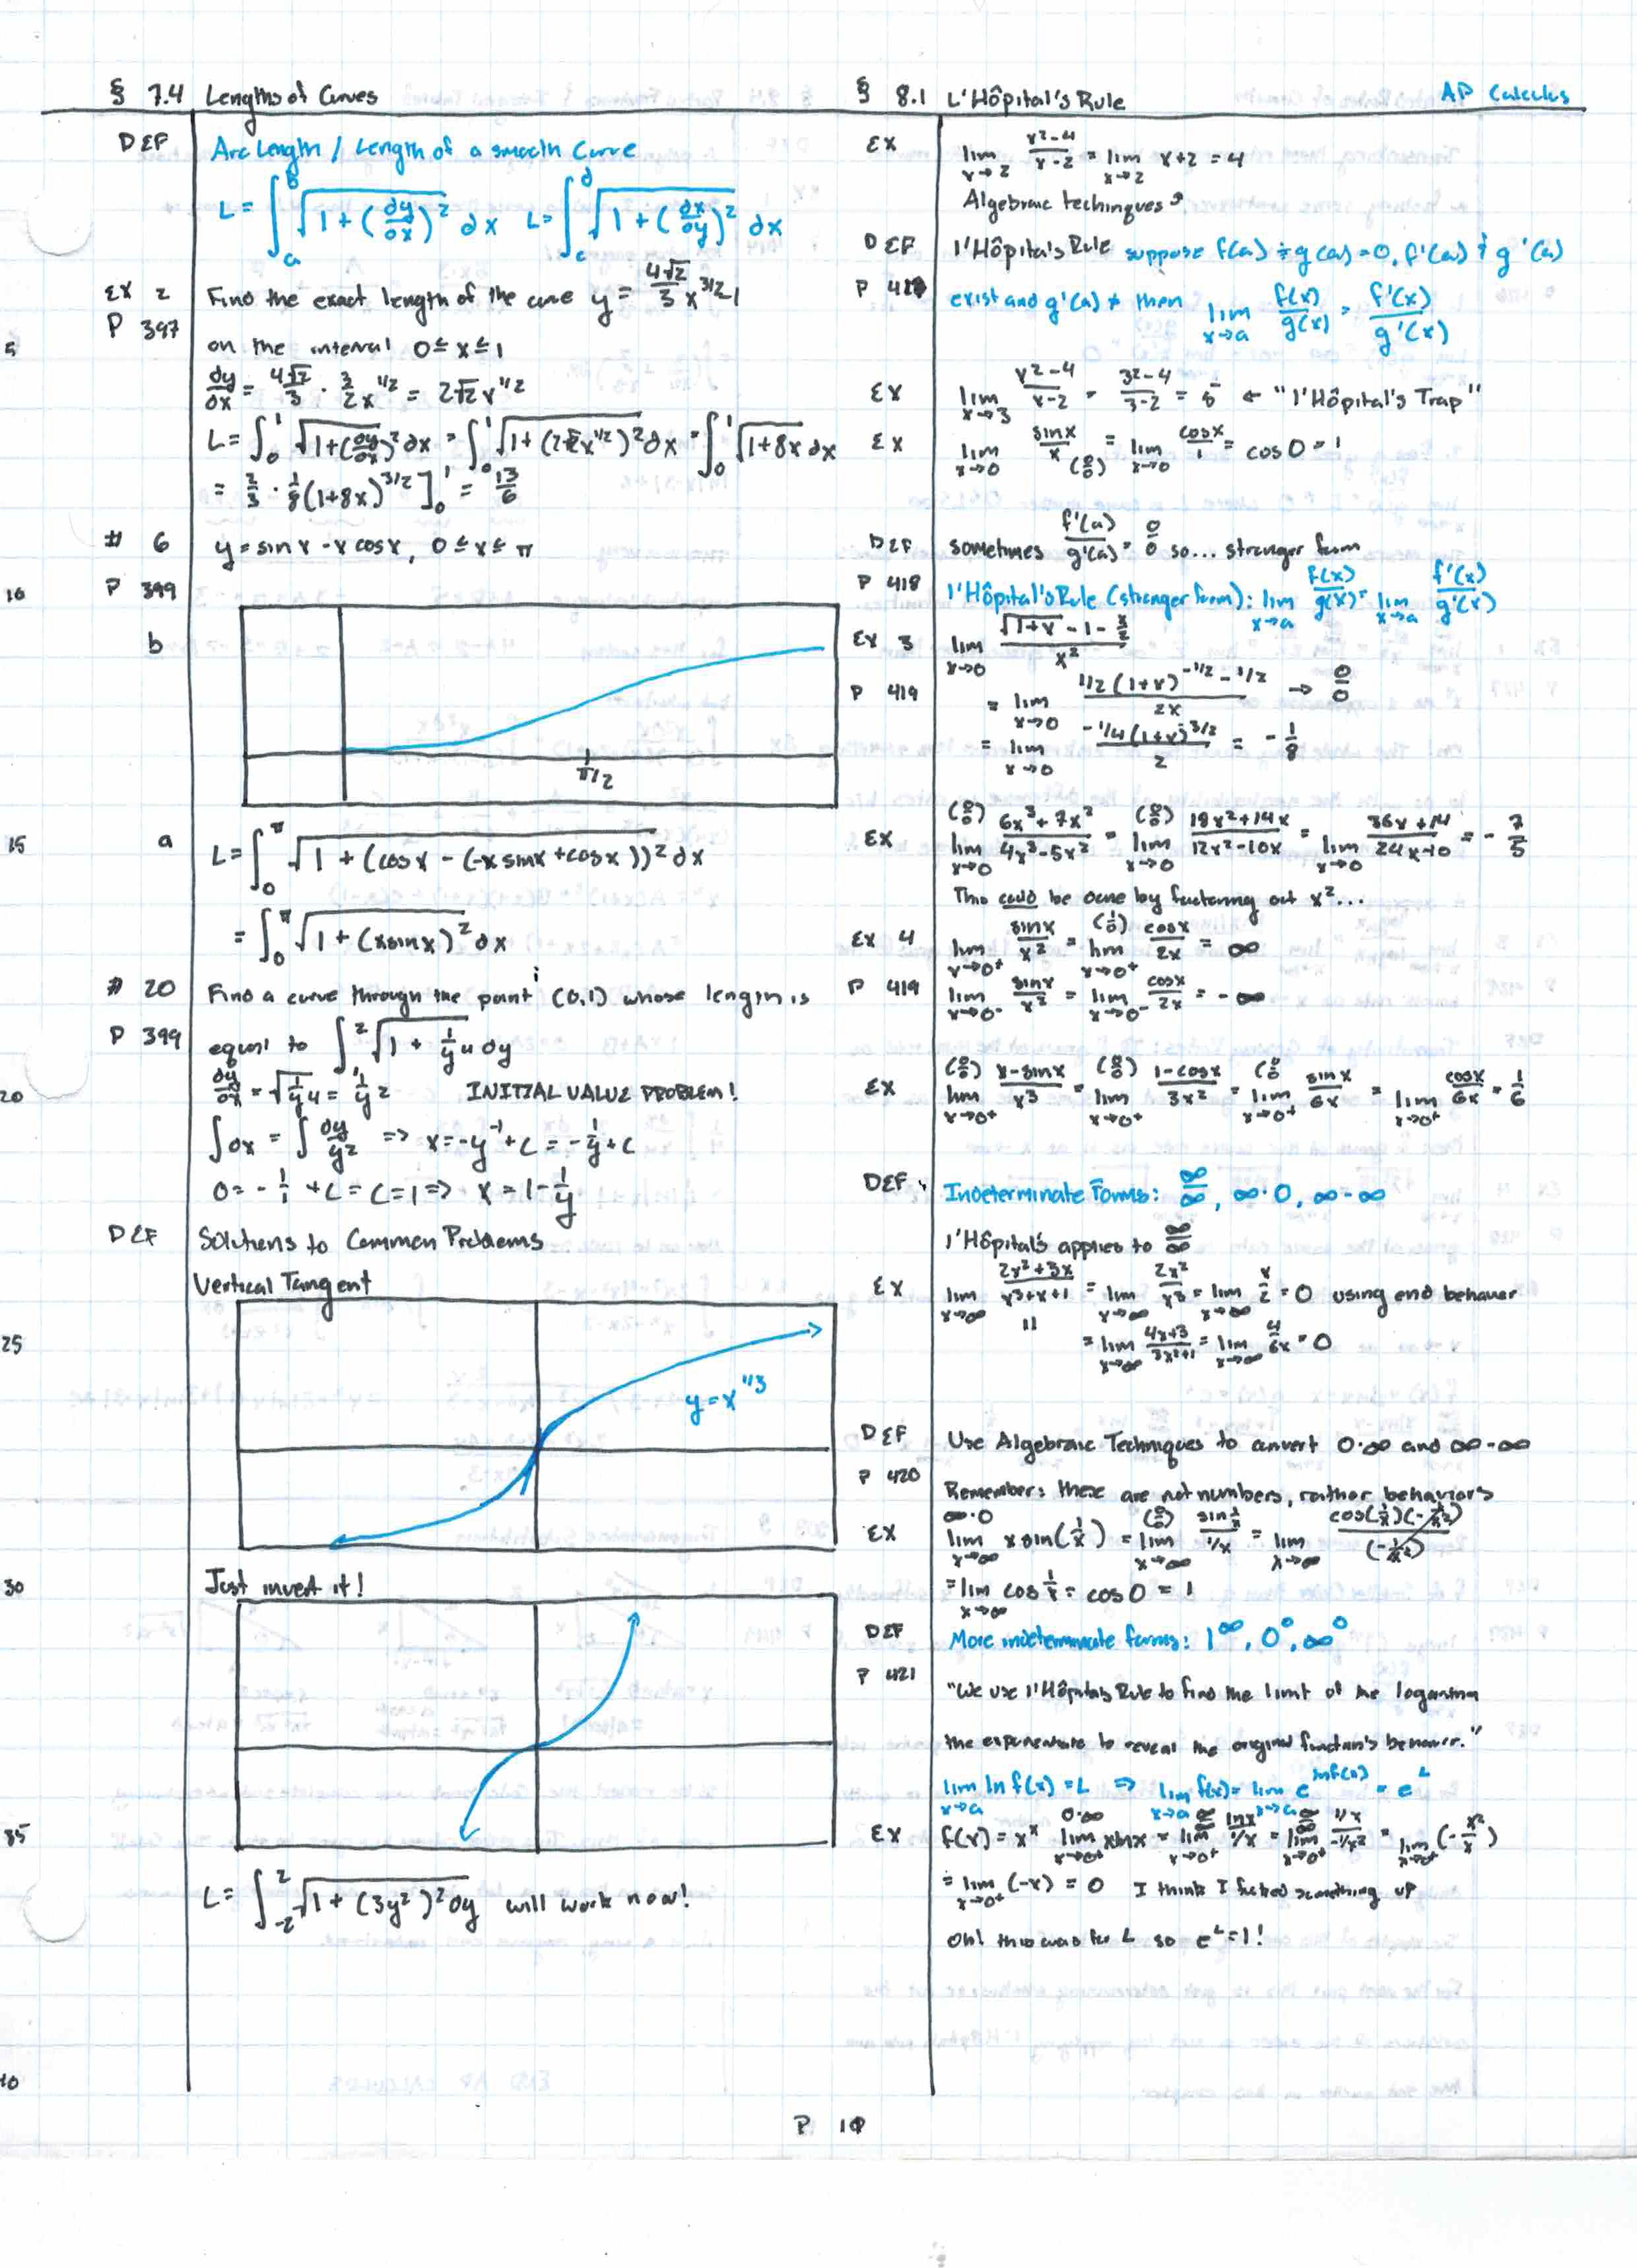 § 7.4 Lengths of Curves
DEF Arc Length / Length of a smooth curve
L = ∫_a^b √(1 + (dy/dx)²) dx L = ∫_c^d √(1 + (dx/dy)²) dx
EX 2 Find the exact length of the curve y = 4√2/3 x^3/2 1
P 397
5 on the interval 0 ≤ x ≤ 1
dy/dx = 4√2/3 · 3/2 x^1/2 = 2√2 x^1/2
L = ∫_0^1 √(1+(dy/dx)²) dx = ∫_0^1 √(1+(2√2x^1/2)²) dx = ∫_0^1 √(1+8x) dx
= 2/3 · 1/8 (1+8x)^3/2 ]_0^1 = 13/6
# 6 y = sinx - x cosx, 0 ≤ x ≤ π
10 P 399
b
π/2
15 a L = ∫_0^π √(1 + (cosx - (-x sinx + cosx))² dx
= ∫_0^π √(1 + (xsinx)²) dx
# 20 Find a curve through the point (0,1) whose length is
P 399 equal to ∫_1^2 √(1 + 1/y⁴) dy
20 dy/dx = √(1/y⁴) = 1/y² INITIAL VALUE PROBLEM!
∫dx = ∫ dy/y² => x = -y^-1 + C = -1/y + C
0 = -1/1 + C = C = 1 => x = 1 - 1/y
DEF Solutions to Common Problems
Vertical Tangent
25
y = x^1/3
30 Just invert it!
35
L = ∫_-2^2 √(1 + (3y²)²) dy will work now!
40
§ 8.1 L'Hôpital's Rule AP Calculus
EX lim x→2 (x²-4)/(x-2) = lim x→2 x+2 = 4
Algebraic techinques
DEF l'Hôpital's Rule suppose f(a) = g(a) = 0, f'(a) & g'(a)
P exist and g'(a) ≠ then lim x→a f(x)/g(x) = f'(x)/g'(x)
EX lim x→3 (x²-4)/(x-2) = (3²-4)/(3-2) = 5 ← "l'Hôpital's Trap"
EX lim x→0 sinx/x (0/0) = lim x→0 cosx/1 = cos0 = 1
DEF sometimes f'(a)/g'(a) = 0/0 so... stronger form
P 418 l'Hôpital's Rule (stronger form): lim x→a f(x)/g(x) = lim x→a f'(x)/g'(x)
EX 3 lim x→0 (√(1+x) - 1 - x/2)/x²
P 419 = lim x→0 (1/2(1+x)^-1/2 - 1/2)/2x → 0/0
= lim x→0 (-1/4(1+x)^-3/2)/2 = -1/8
EX (0/0) lim x→0 (6x³+7x²)/(4x³-5x²) = (0/0) lim x→0 (18x²+14x)/(12x²-10x) = lim x→0 (36x+14)/(24x-10) = -7/5
This could be done by factoring out x²...
EX 4 lim x→0⁺ sinx/x² = (1/0) lim x→0⁺ cosx/2x = ∞
P 419 lim x→0⁻ sinx/x² = lim x→0⁻ cosx/2x = -∞
EX (0/0) lim x→0⁺ (x-sinx)/x³ = (0/0) lim x→0⁺ (1-cosx)/3x² = (0/0 lim x→0⁺ sinx/6x = lim x→0⁺ cosx/6x = 1/6
DEF Indeterminate Forms: ∞/∞, ∞·0, ∞-∞
l'Hôpital's applies to ∞/∞
EX lim x→∞ (2x²+3x)/(x³+x+1) = lim x→∞ 2x²/x³ = lim x→∞ x/2 = 0 using end behavior
= lim x→∞ (4x+3)/(3x²+1) = lim x→∞ 4/6x = 0
DEF Use Algebraic Techniques to convert 0·∞ and ∞-∞
P 420 Remember: these are not numbers, rather behaviors
EX ∞·0 lim x→∞ x sin(1/x) = (0/0) lim x→∞ sin 1/x / 1/x = lim x→∞ cos(1/x)(-1/x²) / (-1/x²)
= lim x→∞ cos 1/x = cos 0 = 1
DEF More indeterminate forms: 1^∞, 0⁰, ∞⁰
P 421 "We use l'Hôpitals Rule to find the limit of the logarithm
the exponentiate to reveal the original function's behavior."
lim x→a ln f(x) = L => lim x→a f(x) = lim x→a e^lnf(x) = e^L
EX f(x) = x^x 0·∞ lim x→0⁺ xlnx = ∞/∞ lim x→0⁺ lnx / 1/x = ∞/∞ lim x→0⁺ 1/x / -1/x² = lim x→0⁺ (-x²/x)
= lim x→0⁺ (-x) = 0 I think I fucked something up
Oh! this was for L so e^L = 1!